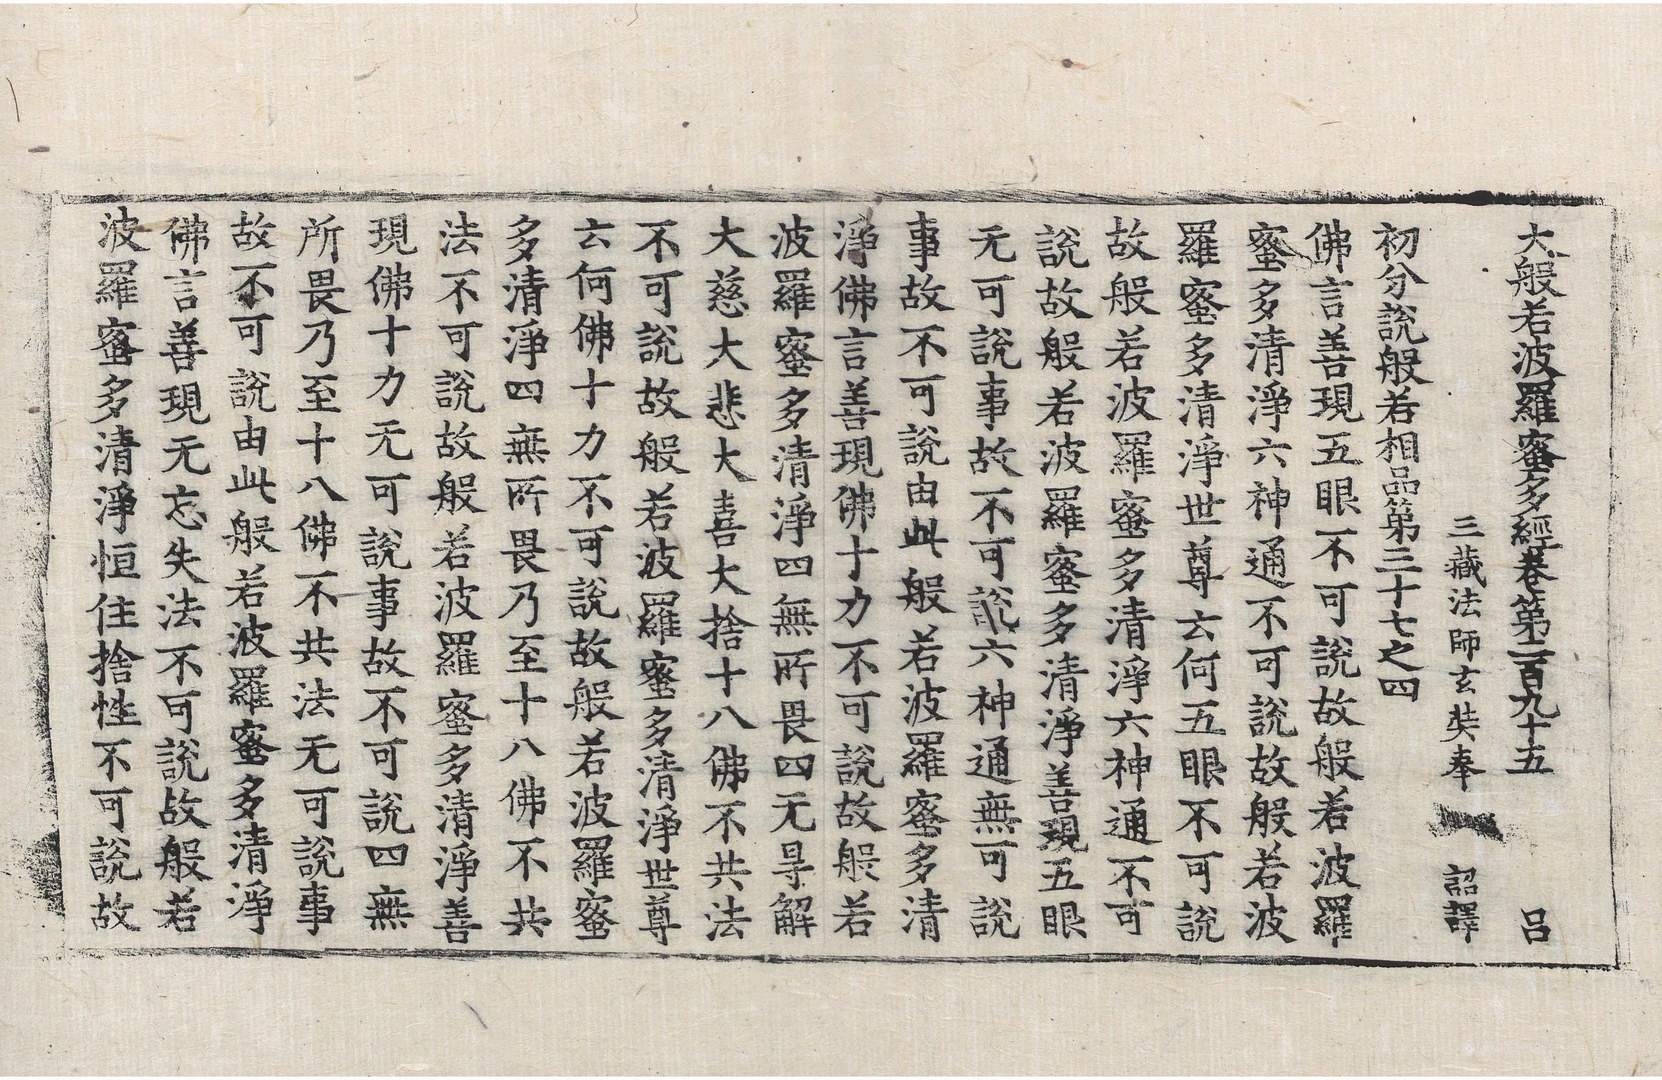 大般若波羅蜜多經卷第二百九十五 呂
三藏法師玄奘奉 詔譯
初分說般若相品第三十七之四
佛言善現五眼不可說故般若波羅
蜜多清淨六神通不可說故般若波
羅蜜多清淨世尊云何五眼不可說
故般若波羅蜜多清淨六神通不可
說故般若波羅蜜多清淨善現五眼
无可說事故不可說六神通無可說
事故不可說由此般若波羅蜜多清
淨佛言善現佛十力不可說故般若
波羅蜜多清淨四無所畏四无㝵解
大慈大悲大喜大捨十八佛不共法
不可說故般若波羅蜜多清淨世尊
云何佛十力不可說故般若波羅蜜
多清淨四無所畏乃至十八佛不共
法不可說故般若波羅蜜多清淨善
現佛十力无可說事故不可說四無
所畏乃至十八佛不共法无可說事
故不可說由此般若波羅蜜多清淨
佛言善現无忘失法不可說故般若
波羅蜜多清淨恒住捨性不可說故